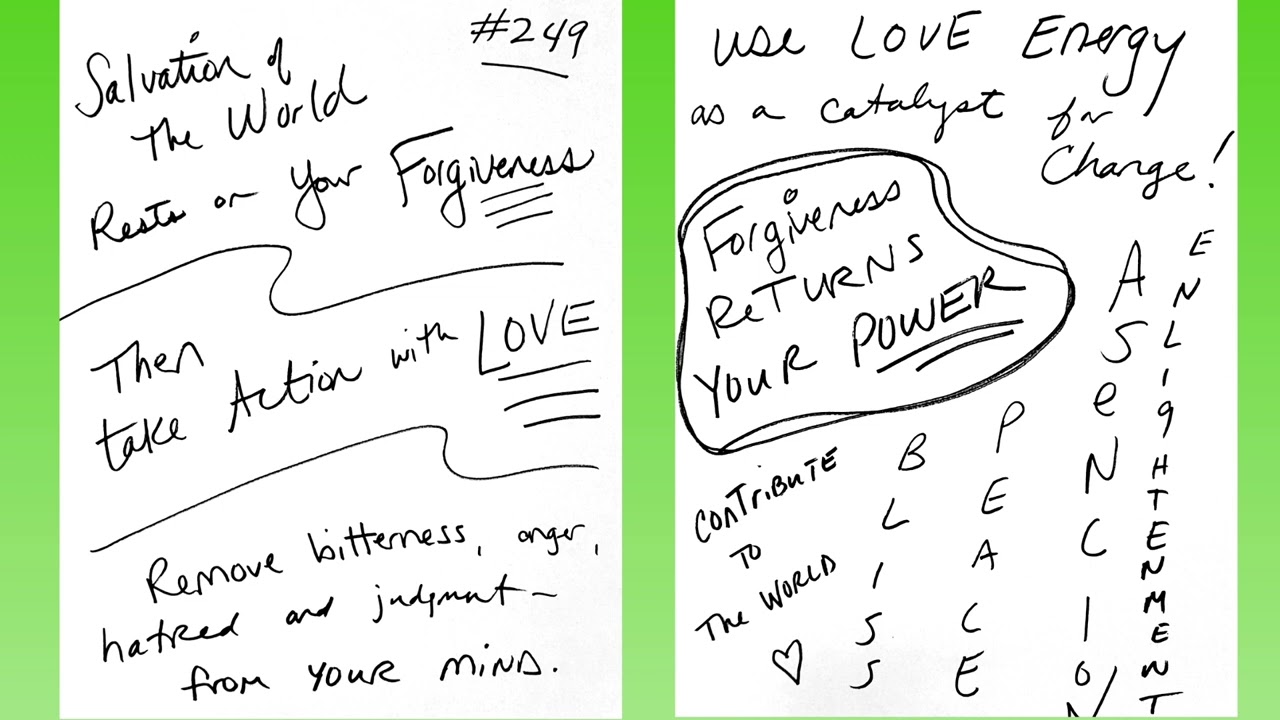 #249
Salvation of
The World
Rests on Your Forgiveness
Then
take Action with LOVE
Remove bitterness, anger,
hatred and judgment –
from YOUR MIND.
use LOVE Energy
as a catalyst for
Change!
Forgiveness
ReTURNS
YOUR POWER
CONTRIBUTE
TO
The WORLD
♡
BLISS
PEACE
ASeNCION
ENLIgHTENMENT